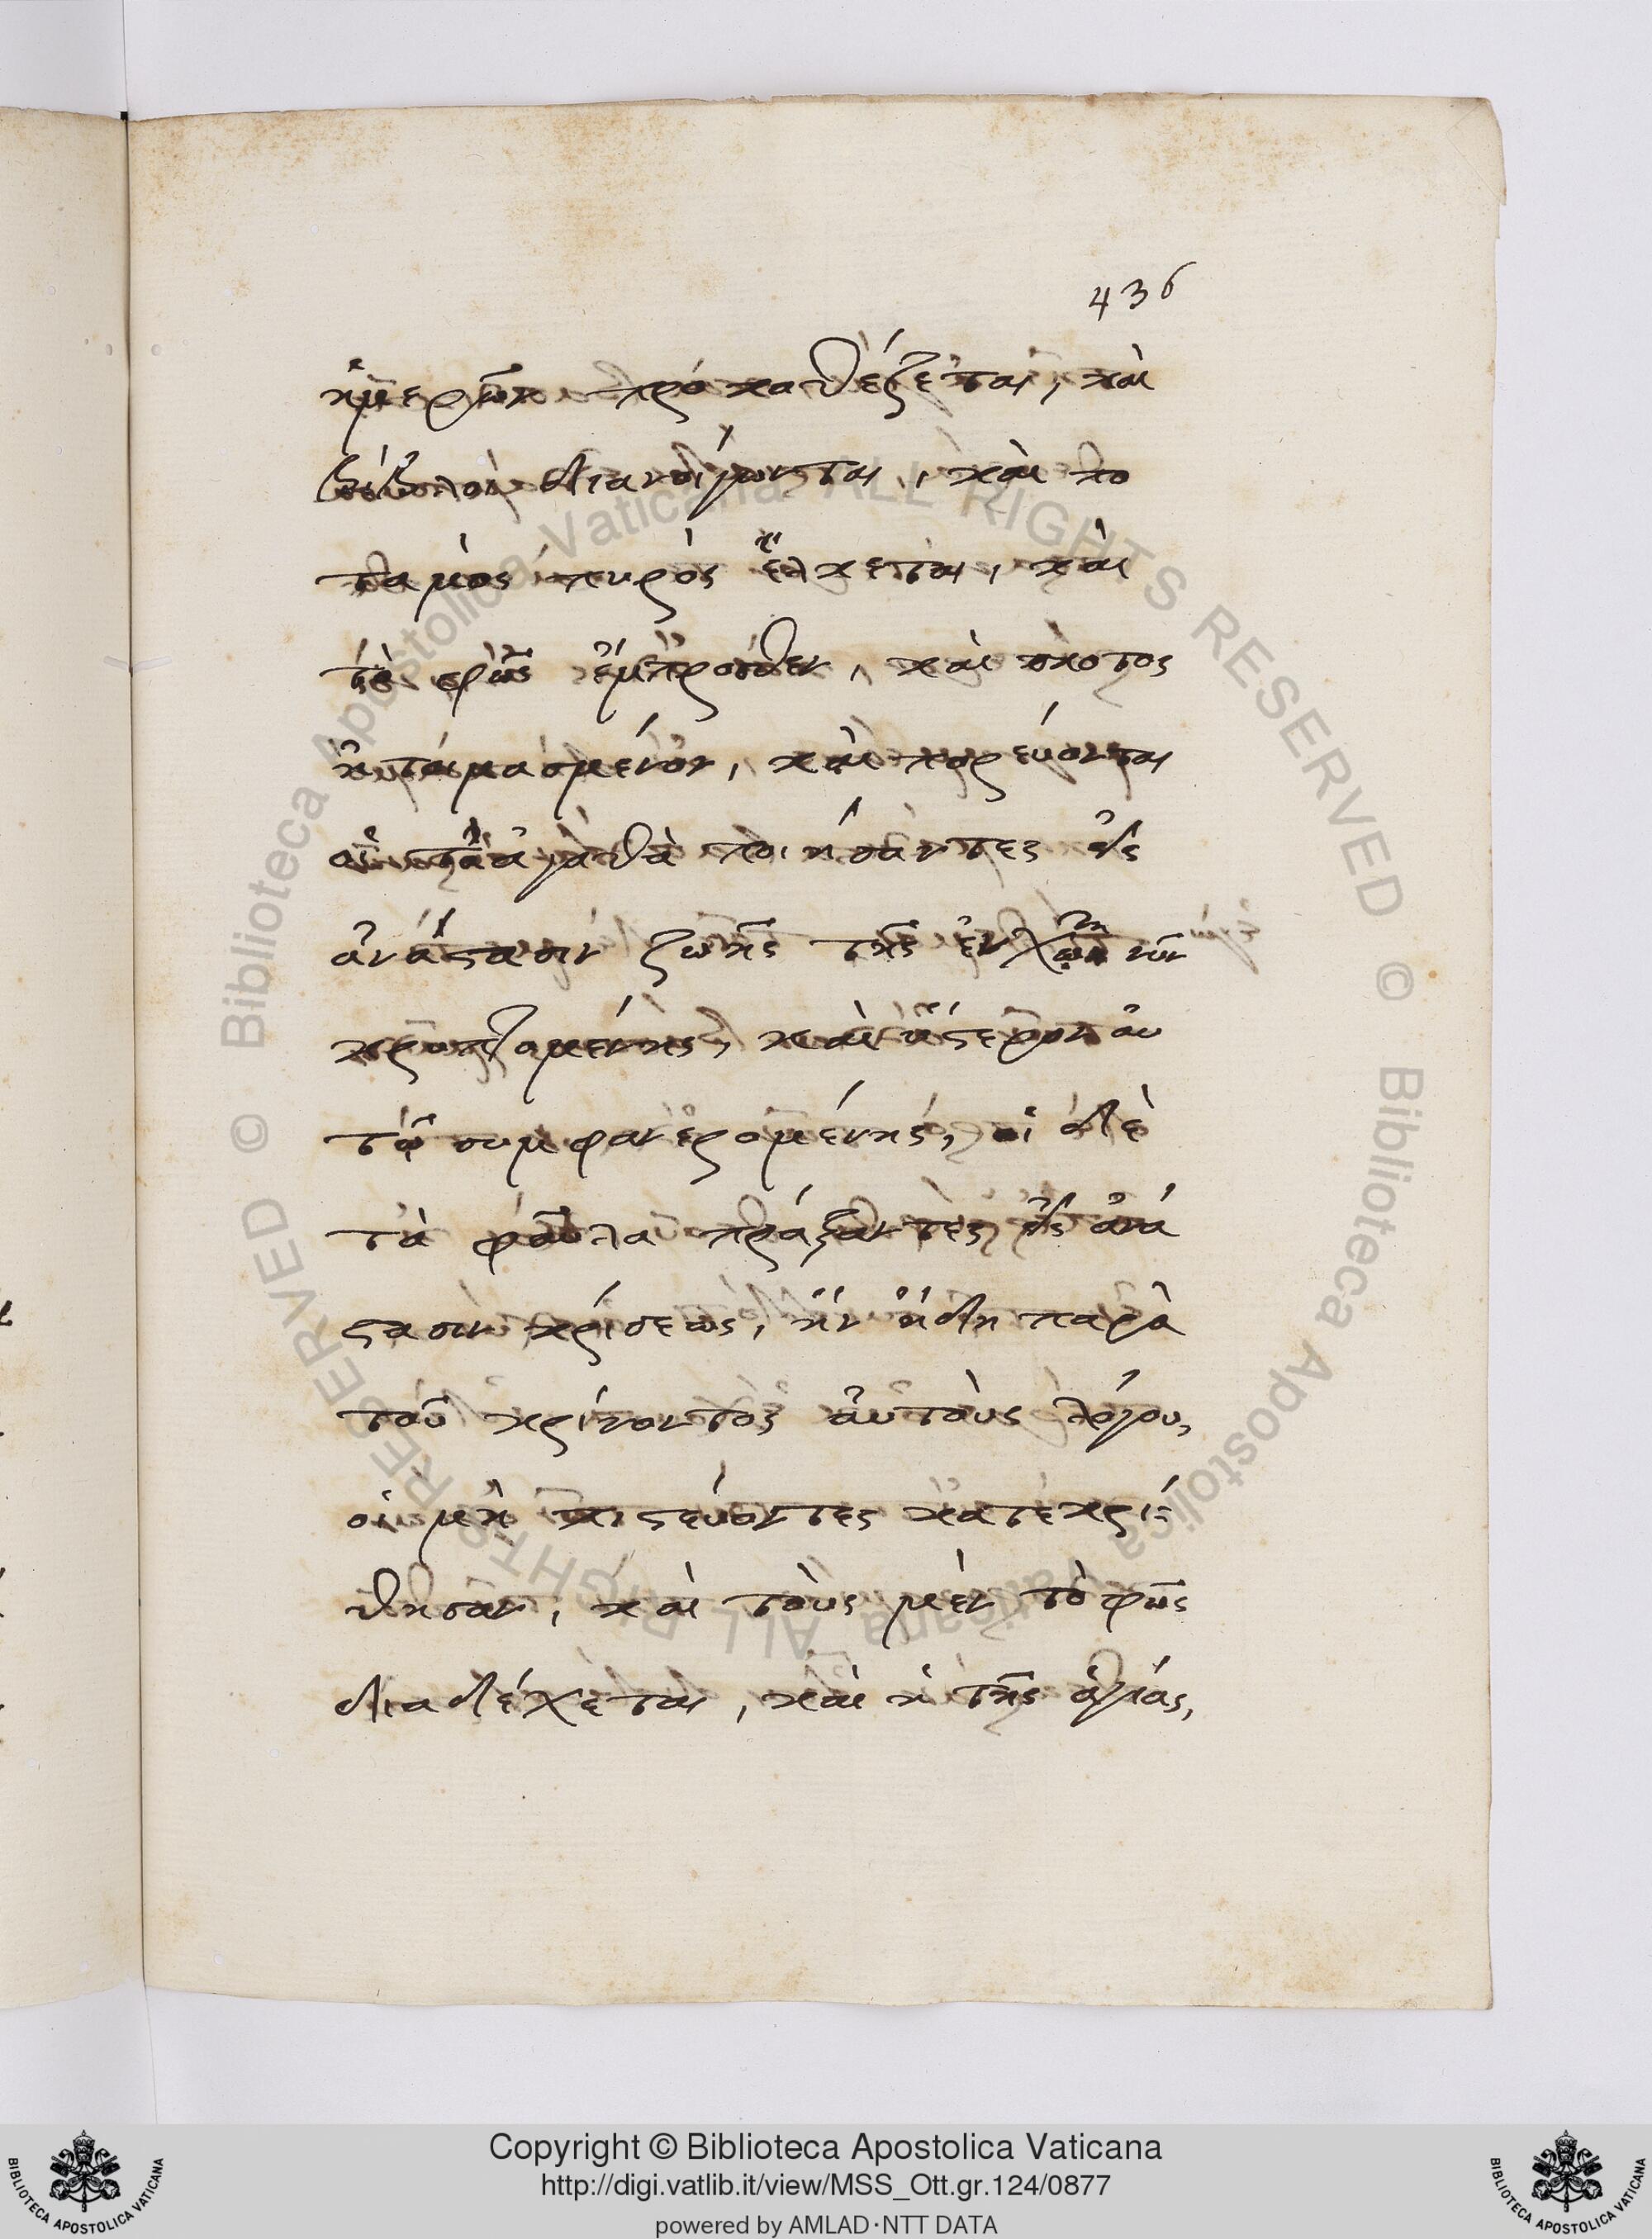 436
ἡμερῶν προκαθέζεται, καὶ
βίβλοι διανοίγωνται, καὶ πο
ταμὸς πυρὸς ἕλκεται, καὶ
τὸ φῶς ἔμπροσθεν, καὶ σκότος
ἡτοιμασμένον, καὶ πορεύονται
οἱ τὰ ἀγαθὰ ποιήσαντες εἰς
ἀνάστασιν ζωῆς τῆς ἐν χῶ νῦν
κρυπτομένης, καὶ ὕστερον αὐ
τῷ συμφανερομένης, οἱ δὲ
τὰ φαῦλα πράξαντες εἰς ἀνά
στασιν κρίσεως, ἣν ἤδη παρὰ
τοῦ κρίνοντος αὐτοὺς λόγου,
οἱ μὴ πιστεύοντες κατεκρί
θησαν, καὶ τοὺς μὲν τὸ φῶς
διαδέχεται, καὶ ἡ τῆς ἁγίας,
© Biblioteca Apostolica Vaticana ALL RIGHTS RESERVED
© Biblioteca Apostolica Vaticana ALL RIGHTS RESERVED
BIBLIOTECA APOSTOLICA VATICANA
Copyright © Biblioteca Apostolica Vaticana
http://digi.vatlib.it/view/MSS_Ott.gr.124/0877
powered by AMLAD·NTT DATA
BIBLIOTECA APOSTOLICA VATICANA